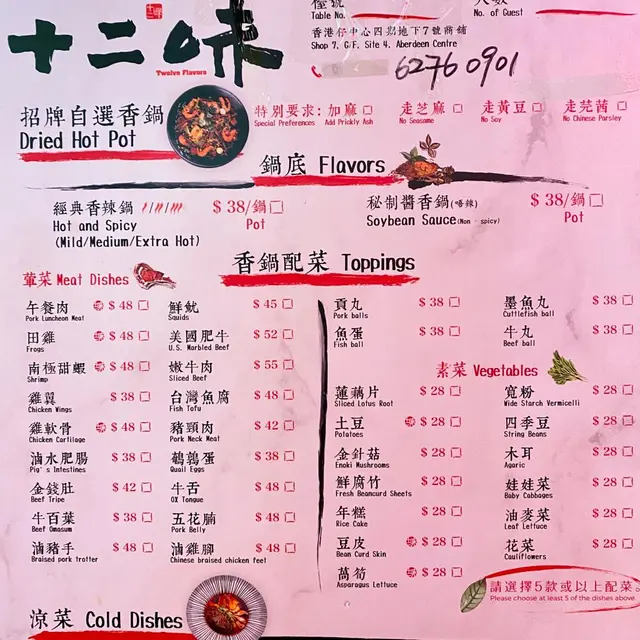 十二味
Twelve Flavors
Table No.
No. of Guest
香港仔中心四期地下7號商鋪
Shop 7, G/F, Site 4, Aberdeen Centre
6276 0901
招牌自選香鍋
Dried Hot Pot
特別要求: 加麻 走芝麻 走黃豆 走芫茜
Special Preferences Add Prickly Ash No Seasame No Soy No Chinese Parsley
鍋底 Flavors
經典香辣鍋 $ 38/鍋
Hot and Spicy Pot
(Mild/Medium/Extra Hot)
秘制醬香鍋(唔辣) $ 38/鍋
Soybean Sauce(Non - spicy) Pot
香鍋配菜 Toppings
葷菜 Meat Dishes
午餐肉 $ 48
Pork Luncheon Meat
田雞 $ 48
Frogs
南極甜蝦 $ 48
Shrimp
雞翼 $ 38
Chicken Wings
雞軟骨 $ 48
Chicken Cartilage
滷水肥腸 $ 38
Pig's Intestines
金錢肚 $ 42
Beef Tripe
牛百葉 $ 38
Beef Omasum
滷豬手 $ 48
Braised pork trotter
鮮魷 $ 45
Squids
美國肥牛 $ 52
U.S. Marbled Beef
嫩牛肉 $ 55
Sliced Beef
台灣魚腐 $ 48
Fish Tofu
豬頸肉 $ 42
Pork Neck Meat
鵪鶉蛋 $ 38
Quail Eggs
牛舌 $ 48
OX Tongue
五花腩 $ 48
Pork Belly
滷雞腳 $ 48
Chinese braised chicken feet
貢丸 $ 38
Pork balls
魚蛋 $ 38
Fish ball
墨魚丸 $ 38
Cuttlefish ball
牛丸 $ 38
Beef ball
素菜 Vegetables
蓮藕片 $ 28
Sliced Lotus Root
土豆 $ 28
Potatoes
金針菇 $ 28
Enoki Mushrooms
鮮腐竹 $ 28
Fresh Beancurd Sheets
年糕 $ 28
Rice Cake
豆皮 $ 28
Bean Curd Skin
萵筍 $ 28
Asparagus Lettuce
寬粉 $ 28
Wide Starch Vermicelli
四季豆 $ 28
String Beans
木耳 $ 28
Agaric
娃娃菜 $ 28
Baby Cabbages
油麥菜 $ 28
Leaf Lettuce
花菜 $ 28
Cauliflowers
請選擇5款或以上配菜
Please choose at least 5 of the dishes above.
涼菜 Cold Dishes